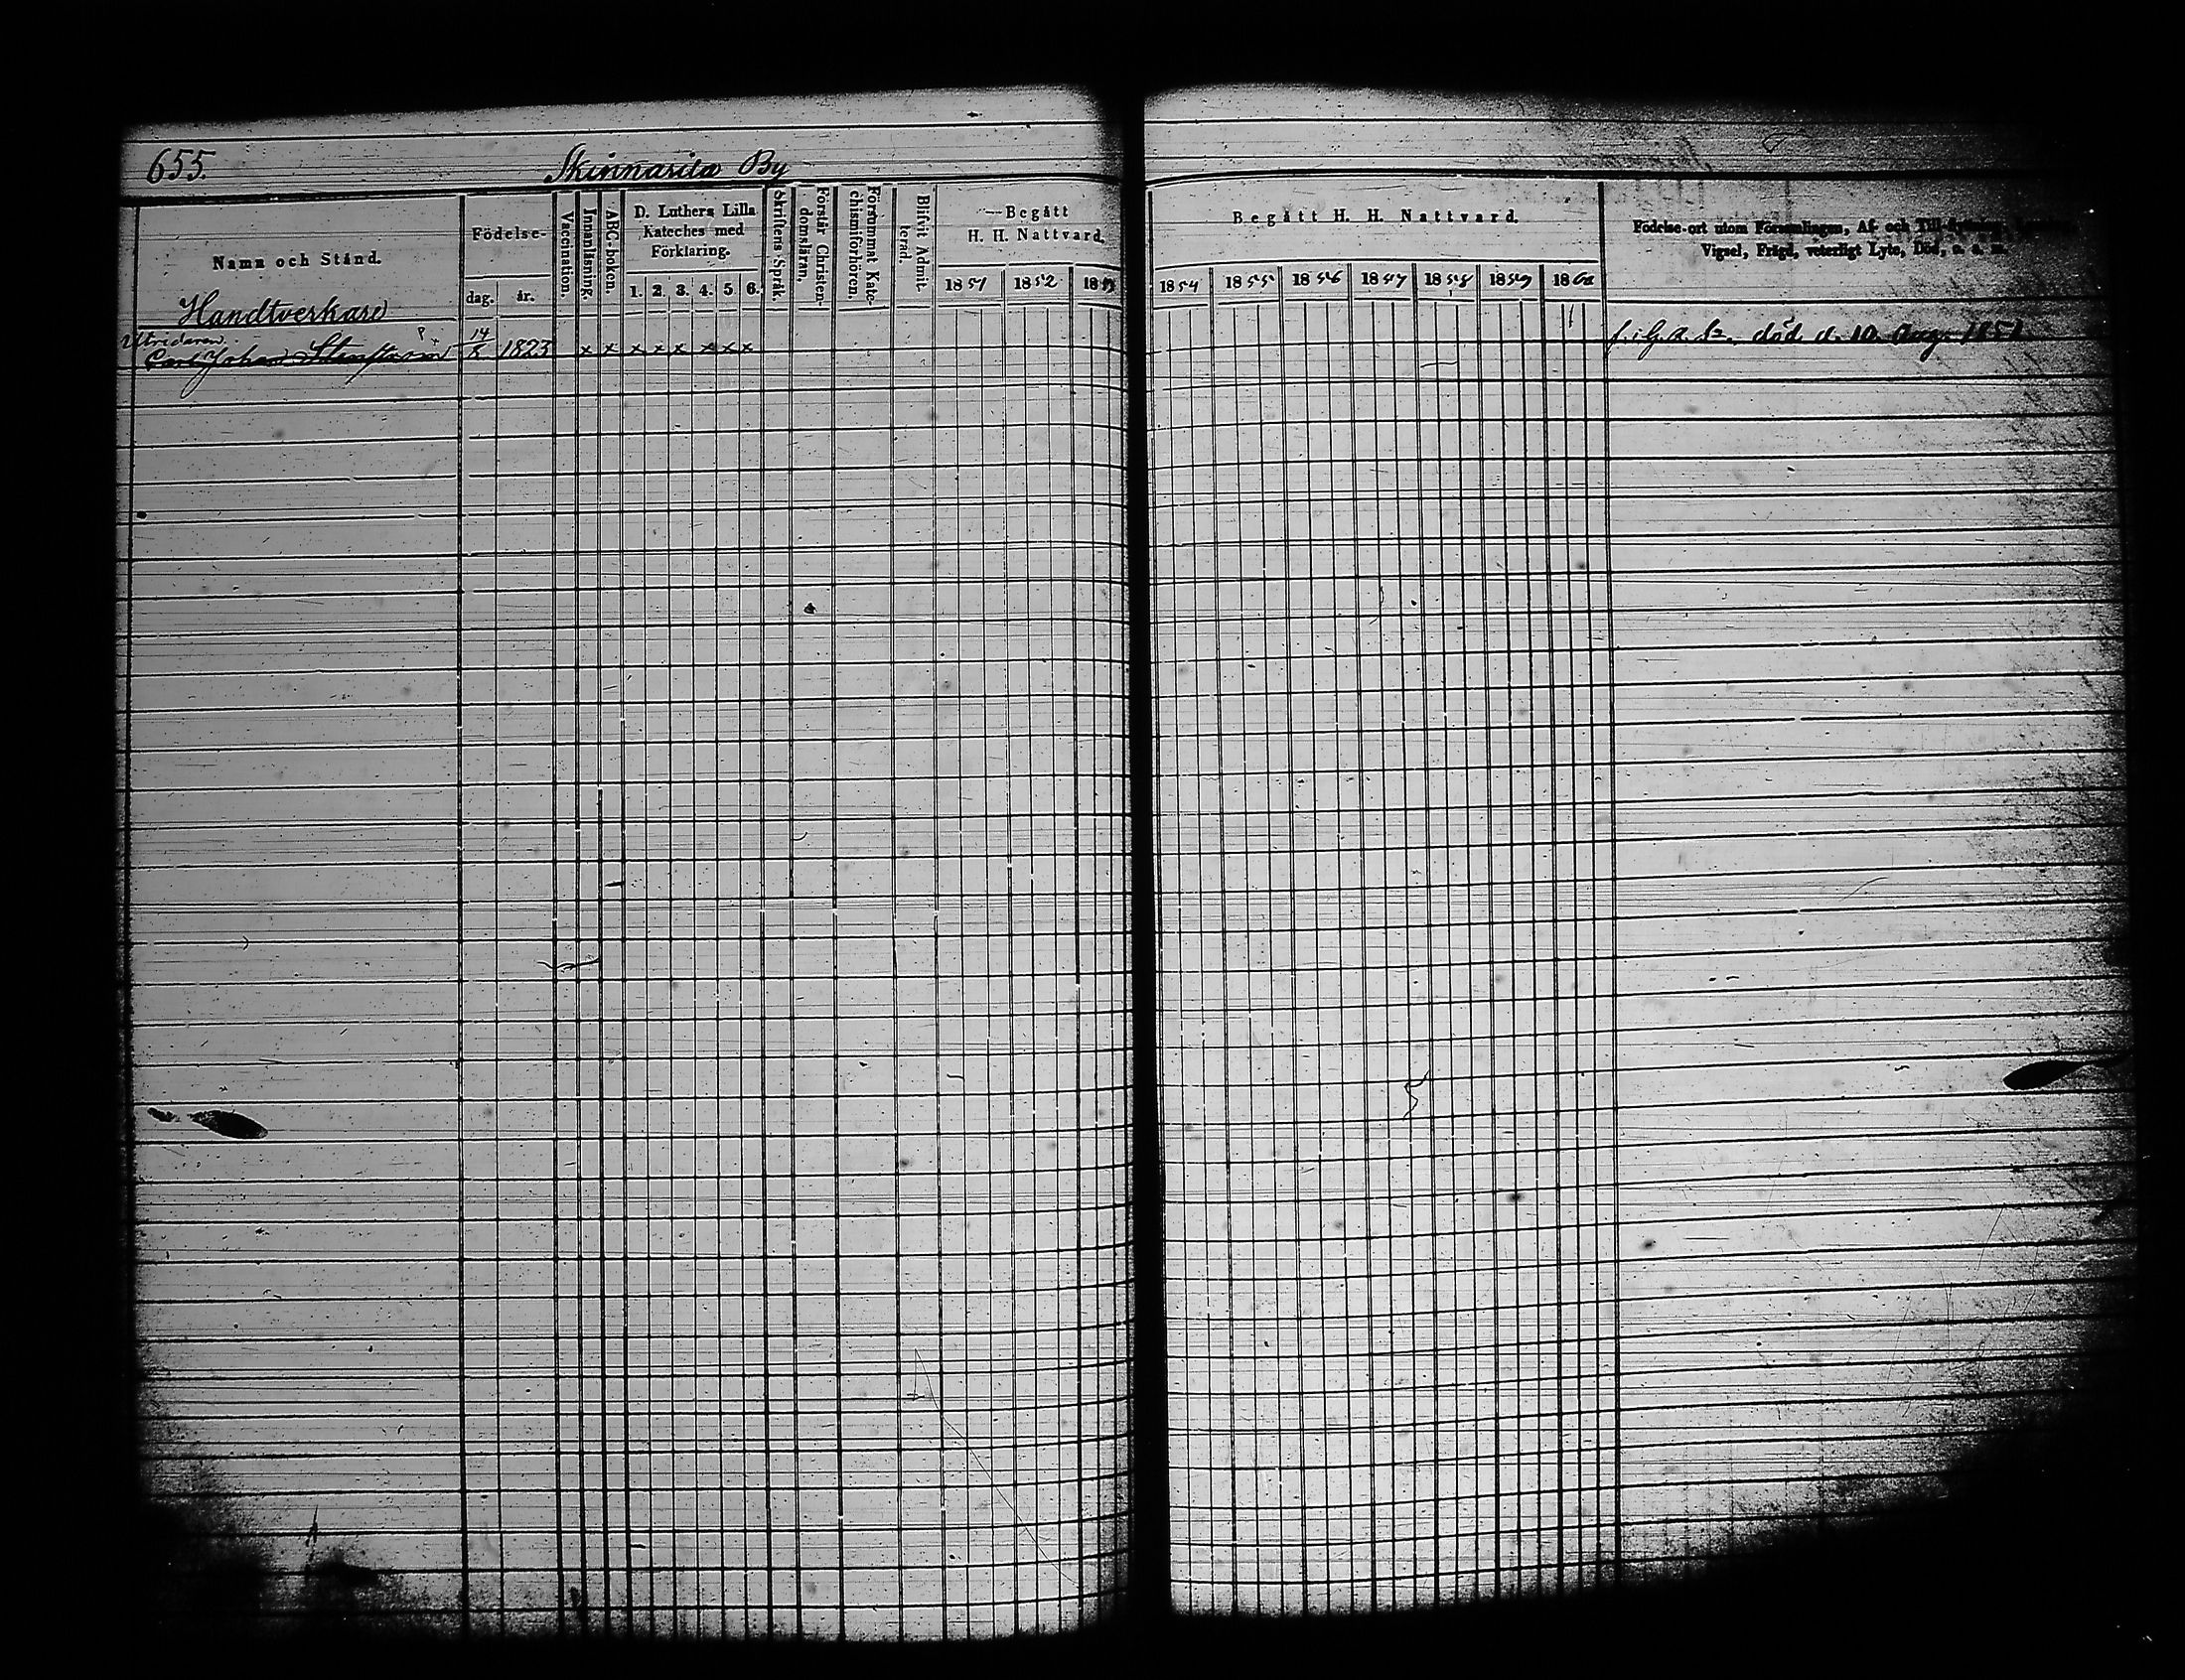 655.
Skinnarila By
Namn och Stånd.
Födelse-
dag.
år.
Vaccination.
Innanläsning.
ABC-boken.
D. Luthers Lilla
Kateches med
Förklaring.
1. 2. 3. 4. 5. 6.
Skriftens Språk.
Förstår Christen-
domsläran.
Försummat Kate-
chismiförhören.
Blifvit Admit-
terad.
Begått
H. H. Nattvard.
1851 1852 1853
Begått H. H. Nattvard.
1854 1855 1856 1857 1858 1859 1860
Födelse-ort utom Församlingen, Af- och Till-flyttning,
Vigsel, Frägd, veterligt Lyte, Död, o. s. v.
Handtverkare
Carl Johan
14/8 1823 x x x x x x x x
död d. 10 Aug. 1851